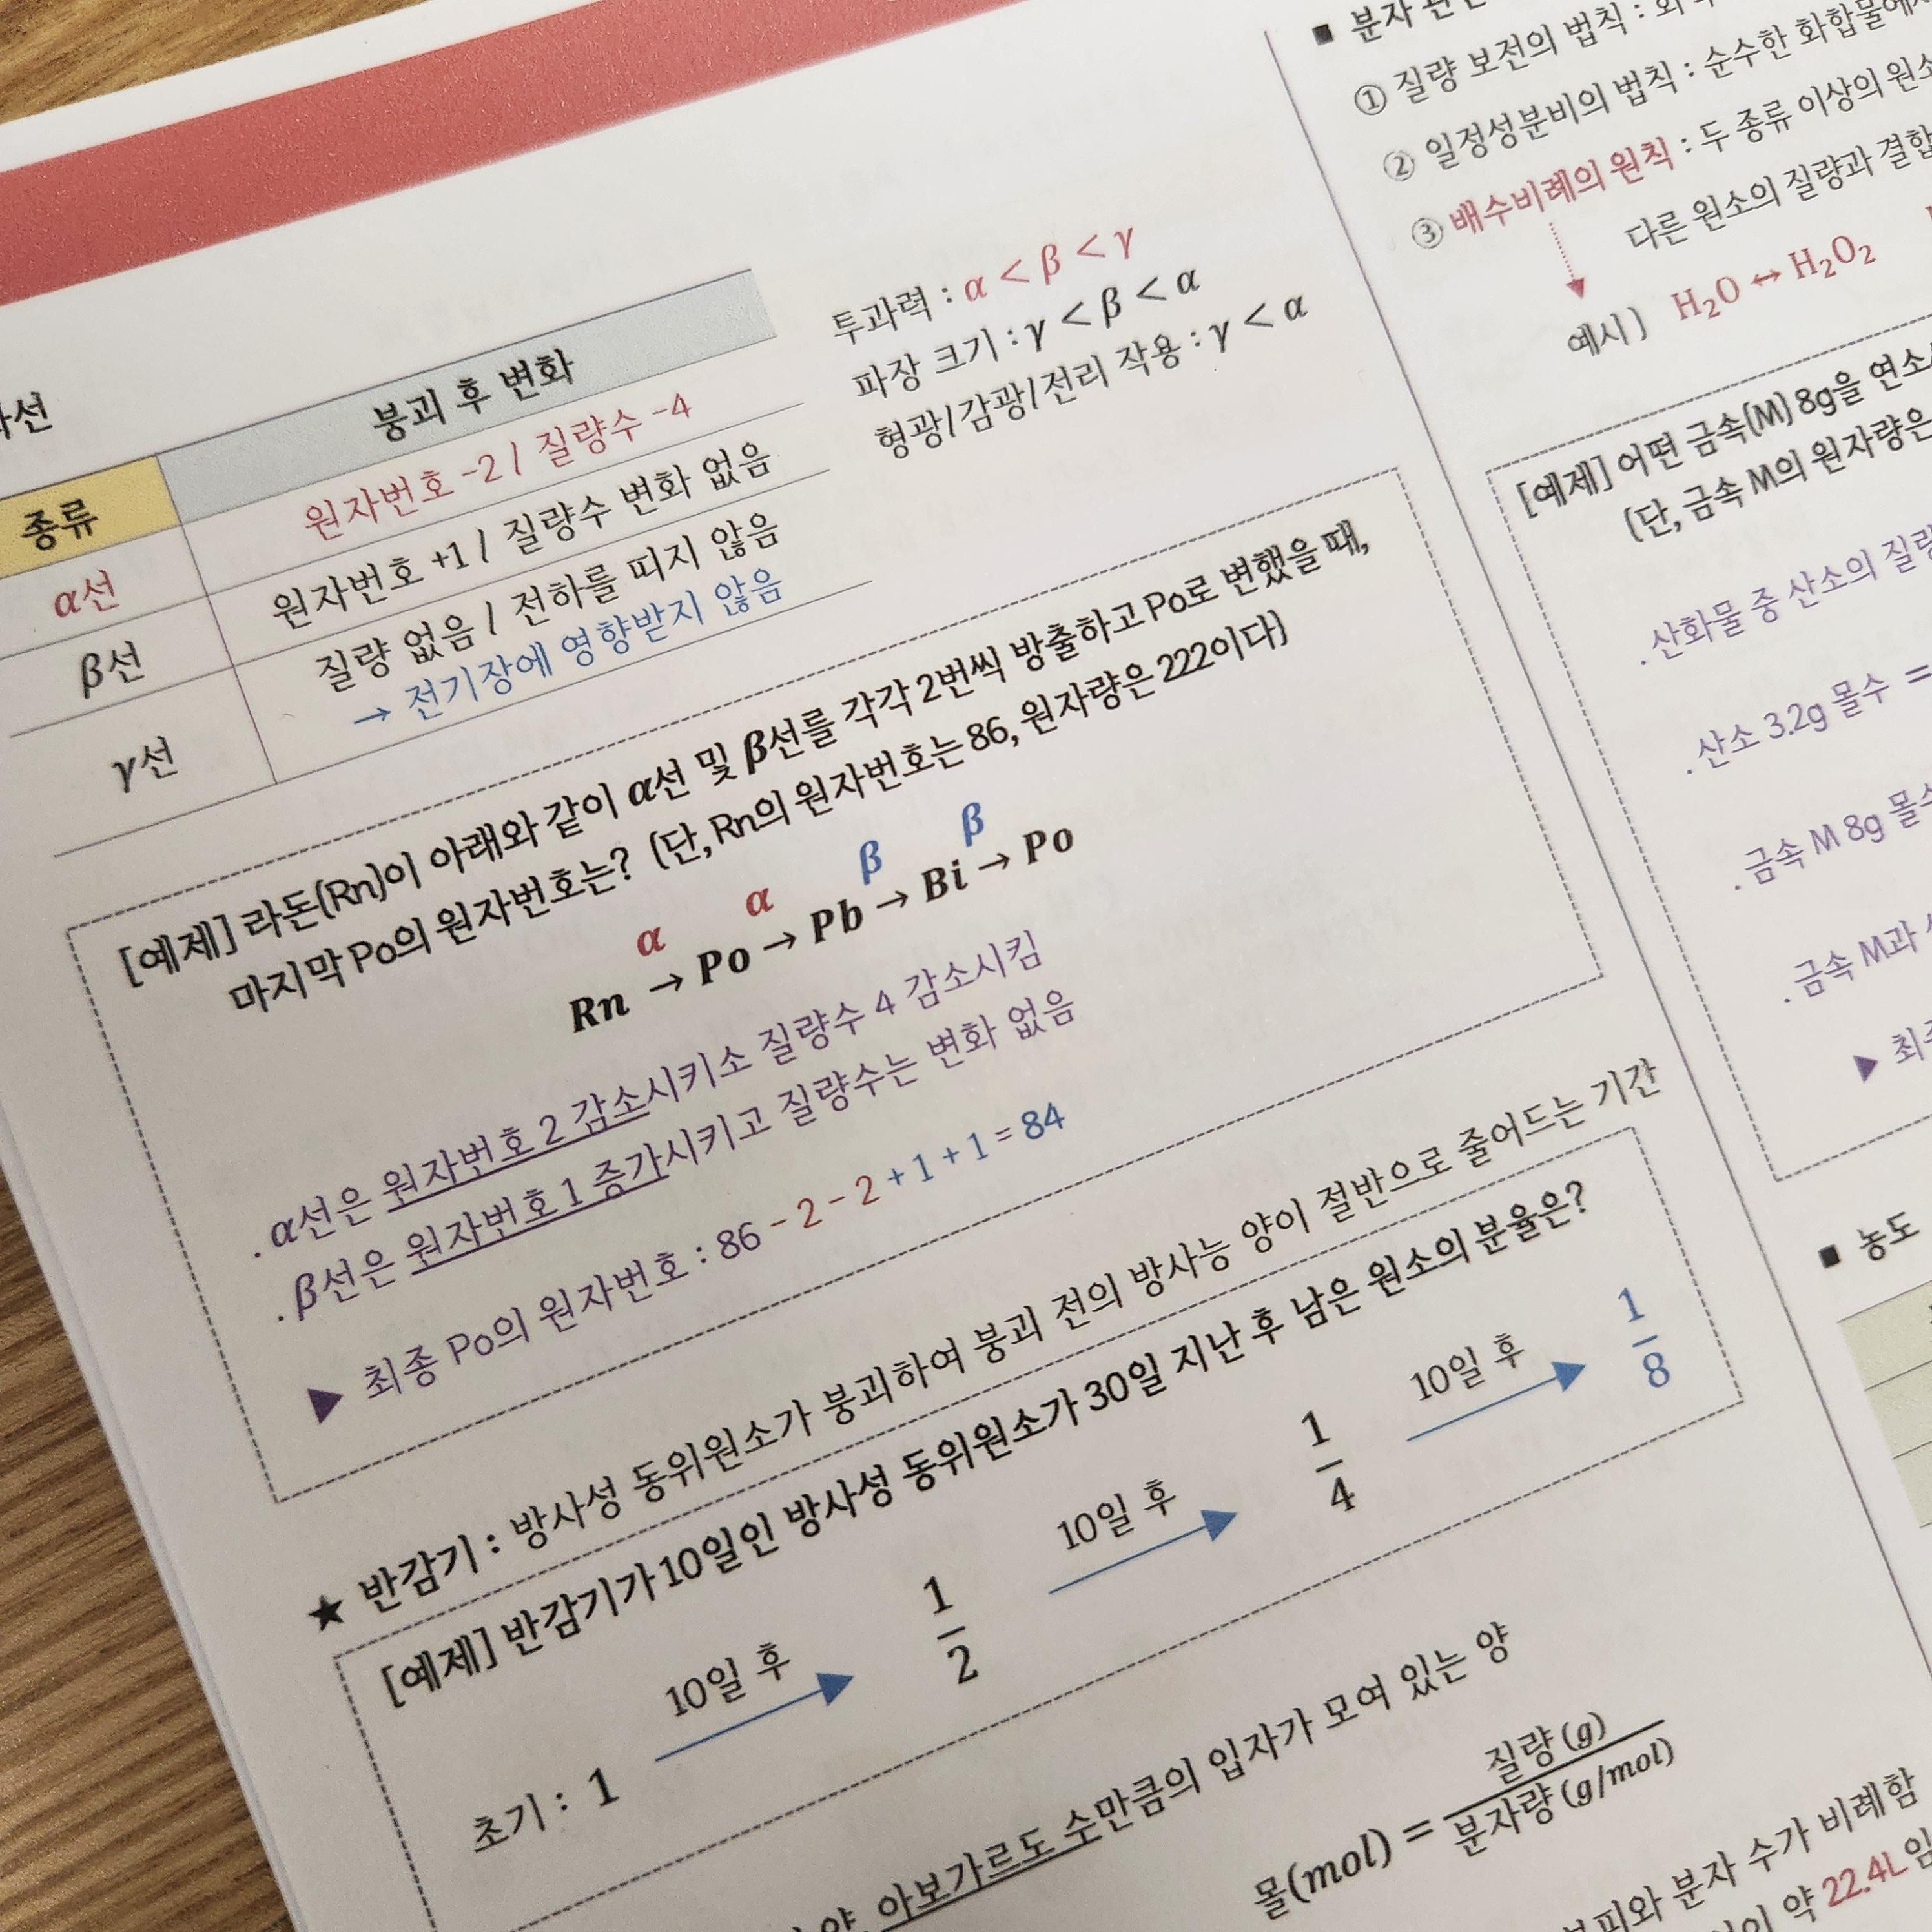 종류
붕괴 후 변화
α선
원자번호 -2 / 질량수 -4
β선
원자번호 +1 / 질량수 변화 없음
γ선
질량 없음 / 전하를 띠지 않음
→ 전기장에 영향받지 않음
투과력 : α < β < γ
파장 크기 : γ < β < α
형광/감광/전리 작용 : γ < α
[예제] 라돈(Rn)이 아래와 같이 α선 및 β선를 각각 2번씩 방출하고 Po로 변했을 때,
마지막 Po의 원자번호는? (단, Rn의 원자번호는 86, 원자량은 222이다)
α α β β
Rn → Po → Pb → Bi → Po
. α선은 원자번호 2 감소시키소 질량수 4 감소시킴
. β선은 원자번호 1 증가시키고 질량수는 변화 없음
▶ 최종 Po의 원자번호 : 86 - 2 - 2 + 1 + 1 = 84
★ 반감기 : 방사성 동위원소가 붕괴하여 붕괴 전의 방사능 양이 절반으로 줄어드는 기간
[예제] 반감기가 10일인 방사성 동위원소가 30일 지난 후 남은 원소의 분율은?
초기 : 1 10일 후 1/2 10일 후 1/4 10일 후 1/8
아보가르도 숫만큼의 입자가 모여 있는 양
몰(mol) = 질량(g) / 분자량(g/mol)
분자 수가 비례함
약 22.4L
■ 분자
① 질량 보전의 법칙 :
② 일정성분비의 법칙 : 순수한 화합물에서
③ 배수비례의 원칙 : 두 종류 이상의
다른 원소의 질량과
예시) H2O ↔ H2O2
[예제] 어떤 금속(M) 8g을
(단, 금속 M의 원자량은
. 산화물 중 산소의
. 산소 3.2g 몰수 =
. 금속 M 8g
. 금속 M과
▶
■ 농도